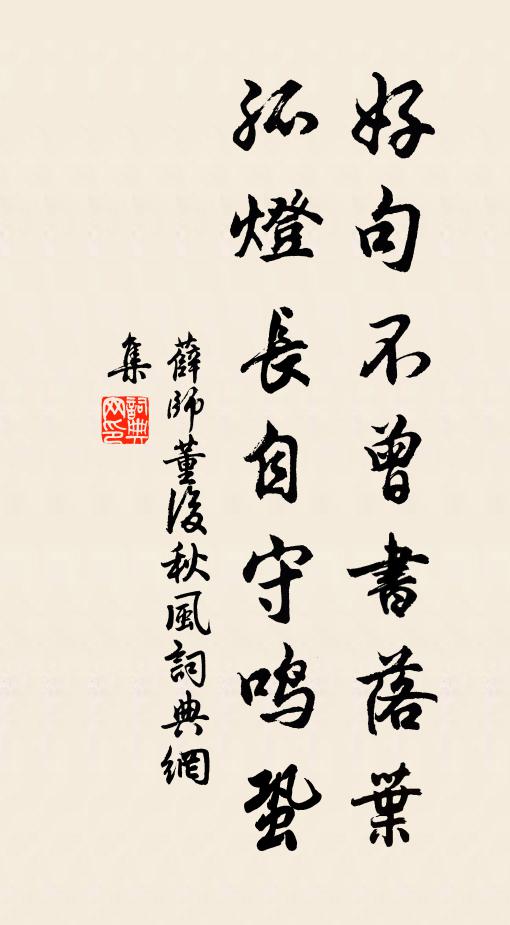 好句不曾書落葉
孤燈長自守鳴蛩
薛師董後秋風詞典網
集
詞典網印